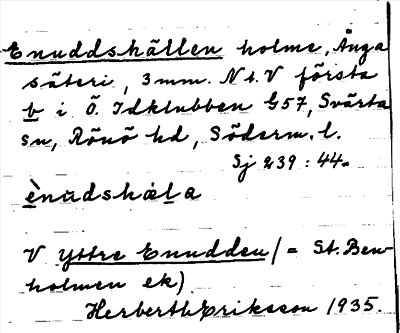 Enuddshällen holme, Änga
säteri, 3 mm. N t. V första
b i Ö. Idklubben G57, Svärta
sn, Rönö hd, Söderm. l.
Sj 239 : 44.
ènudshäla
V Yttre Enudden (= St. Ben-
holmen ek)
Herbert Eriksson 1935.